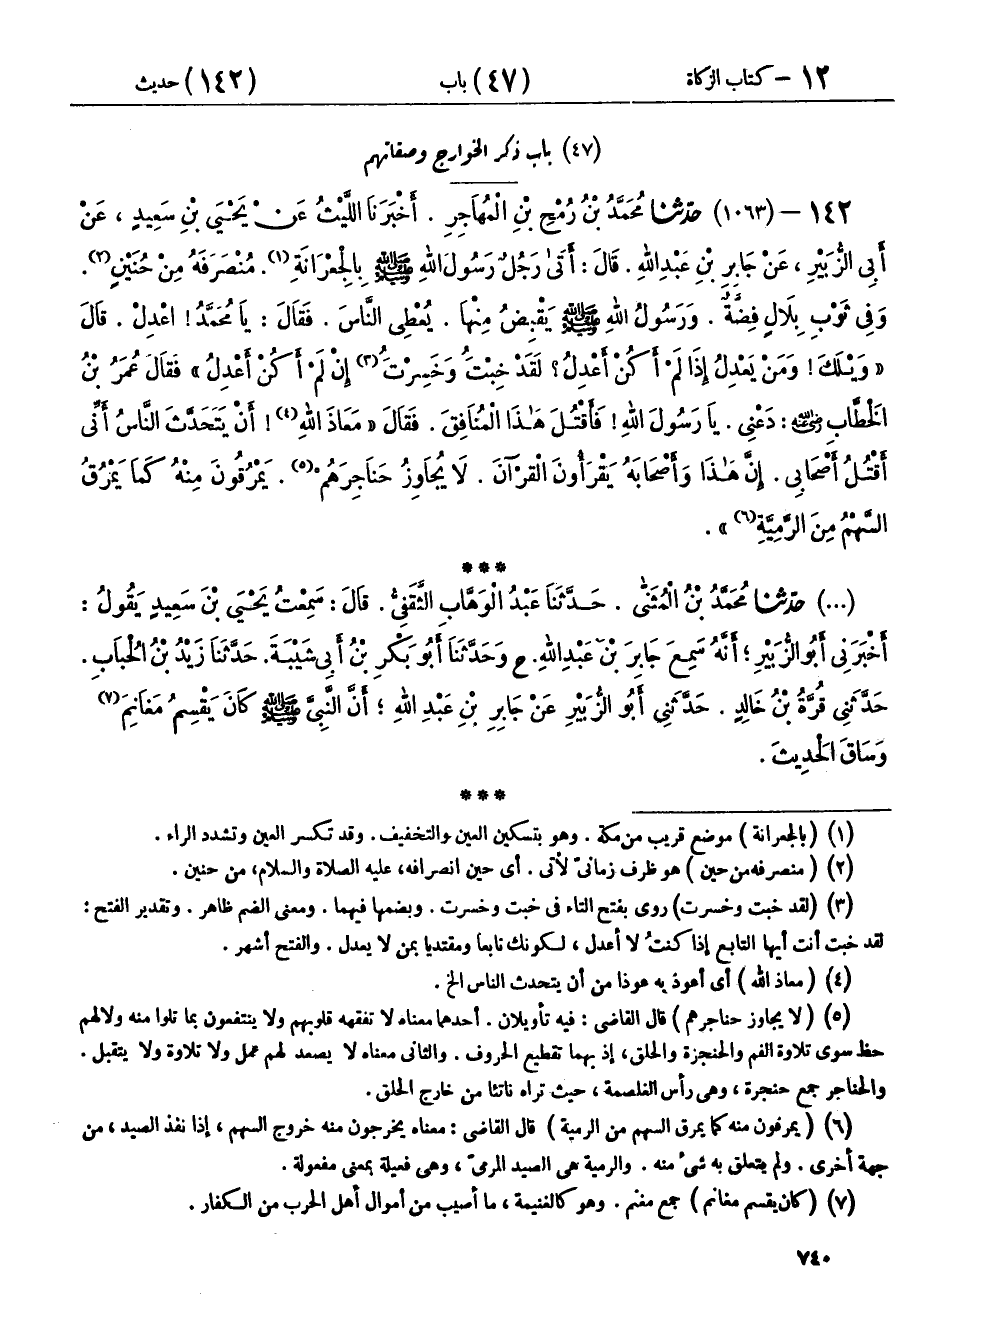 ١٢ – كتاب الزكاة (٤٧) باب (١٤٢) حديث
(٤٧) باب ذكر الخوارج وصفاتهم
١٤٢ – (١٠٦٣) حَدَّثَنَا مُحَمَّدُ بْنُ رُمْحِ بْنِ الْمُهَاجِرِ . أَخْبَرَنَا اللَّيْثُ عَنْ يَحْيَى بْنِ سَعِيدٍ ، عَنْ
أَبِي الزُّبَيْرِ ، عَنْ جَابِرِ بْنِ عَبْدِاللهِ . قَالَ : أَتَى رَجُلٌ رَسُولَ اللهِ ﷺ بِالْجِعْرَانَةِ(١). مُنْصَرَفَهُ مِنْ حُنَيْنٍ(٢).
وَفِي ثَوْبِ بِلَالٍ فِضَّةٌ . وَرَسُولُ اللهِ ﷺ يَقْبِضُ مِنْهَا . يُعْطِي النَّاسَ . فَقَالَ : يَا مُحَمَّدُ ! اعْدِلْ . قَالَ
« وَيْلَكَ ! وَمَنْ يَعْدِلُ إِذَا لَمْ أَكُنْ أَعْدِلُ ؟ لَقَدْ خِبْتُ وَخَسِرْتُ(٣) إِنْ لَمْ أَكُنْ أَعْدِلُ » فَقَالَ عُمَرُ بْنُ
الْخَطَّابِ رضي الله عنه : دَعْنِي . يَا رَسُولَ اللهِ ! فَأَقْتُلَ هَٰذَا الْمُنَافِقَ . فَقَالَ « مَعَاذَ اللهِ(٤) ! أَنْ يَتَحَدَّثَ النَّاسُ أَنِّي
أَقْتُلُ أَصْحَابِي . إِنَّ هَٰذَا وَأَصْحَابَهُ يَقْرَأُونَ الْقُرْآنَ . لَا يُجَاوِزُ حَنَاجِرَهُمْ(٥) . يَمْرُقُونَ مِنْهُ كَمَا يَمْرُقُ
السَّهْمُ مِنَ الرَّمِيَّةِ(٦) » .
***
(...) حَدَّثَنَا مُحَمَّدُ بْنُ الْمُثَنَّى . حَدَّثَنَا عَبْدُ الْوَهَّابِ الثَّقَفِيُّ . قَالَ : سَمِعْتُ يَحْيَى بْنَ سَعِيدٍ يَقُولُ :
أَخْبَرَنِي أَبُو الزُّبَيْرِ ؛ أَنَّهُ سَمِعَ جَابِرَ بْنَ عَبْدِاللهِ. ح وَحَدَّثَنَا أَبُو بَكْرِ بْنُ أَبِي شَيْبَةَ. حَدَّثَنَا زَيْدُ بْنُ الْحُبَابِ.
حَدَّثَنِي قُرَّةُ بْنُ خَالِدٍ . حَدَّثَنِي أَبُو الزُّبَيْرِ عَنْ جَابِرِ بْنِ عَبْدِ اللهِ ؛ أَنَّ النَّبِيَّ ﷺ كَانَ يَقْسِمُ مَغَانِمَ(٧)
وَسَاقَ الْحَدِيثَ .
***
(١) (بالجعرانة) موضع قريب من مكة . وهو بتسكين العين والتخفيف . وقد تكسر العين وتشدد الراء .
(٢) ( منصرفه من حين ) هو ظرف زمانىّ لأتى . أى حين انصرافه، عليه الصلاة والسلام، من حنين .
(٣) (لقد خبت وخسرت) روى بفتح التاء فى خبت وخسرت . وبضمها فيهما . ومعنى الضم ظاهر . وتقدير الفتح :
لقد خبت أنت أيها التابع إذا كنتُ لا أعدل ، لكونك تابعا ومقتديا بمن لا يعدل . والفتح أشهر .
(٤) ( معاذ الله ) أى أعوذ به عوذا من أن يتحدث الناس الخ .
(٥) ( لا يجاوز حناجرهم ) قال القاضى : فيه تأويلان . أحدهما معناه لا تفقهه قلوبهم ولا ينتفعون بما تلوا منه ولا لهم
حظ سوى تلاوة الفم والحنجرة والحلق، إذ بهما تقطيع الحروف . والثانى معناه لا يصعد لهم عمل ولا تلاوة ولا يتقبل .
والحناجر جمع حنجرة ، وهى رأس الغلصمة ، حيث تراه ناتئا من خارج الحلق .
(٦) ( يمرقون منه كما يمرق السهم من الرمية ) قال القاضى : معناه يخرجون منه خروج السهم ، إذا نفذ الصيد ، من
جهة أخرى . ولم يتعلق به شىء منه . والرمية هى الصيد المرمىّ ، وهى فعيلة بمعنى مفعولة .
(٧) (كان يقسم مغانم) جمع مغنم . وهو كالغنيمة ، ما أصيب من أموال أهل الحرب من الكفار .
٧٤٠